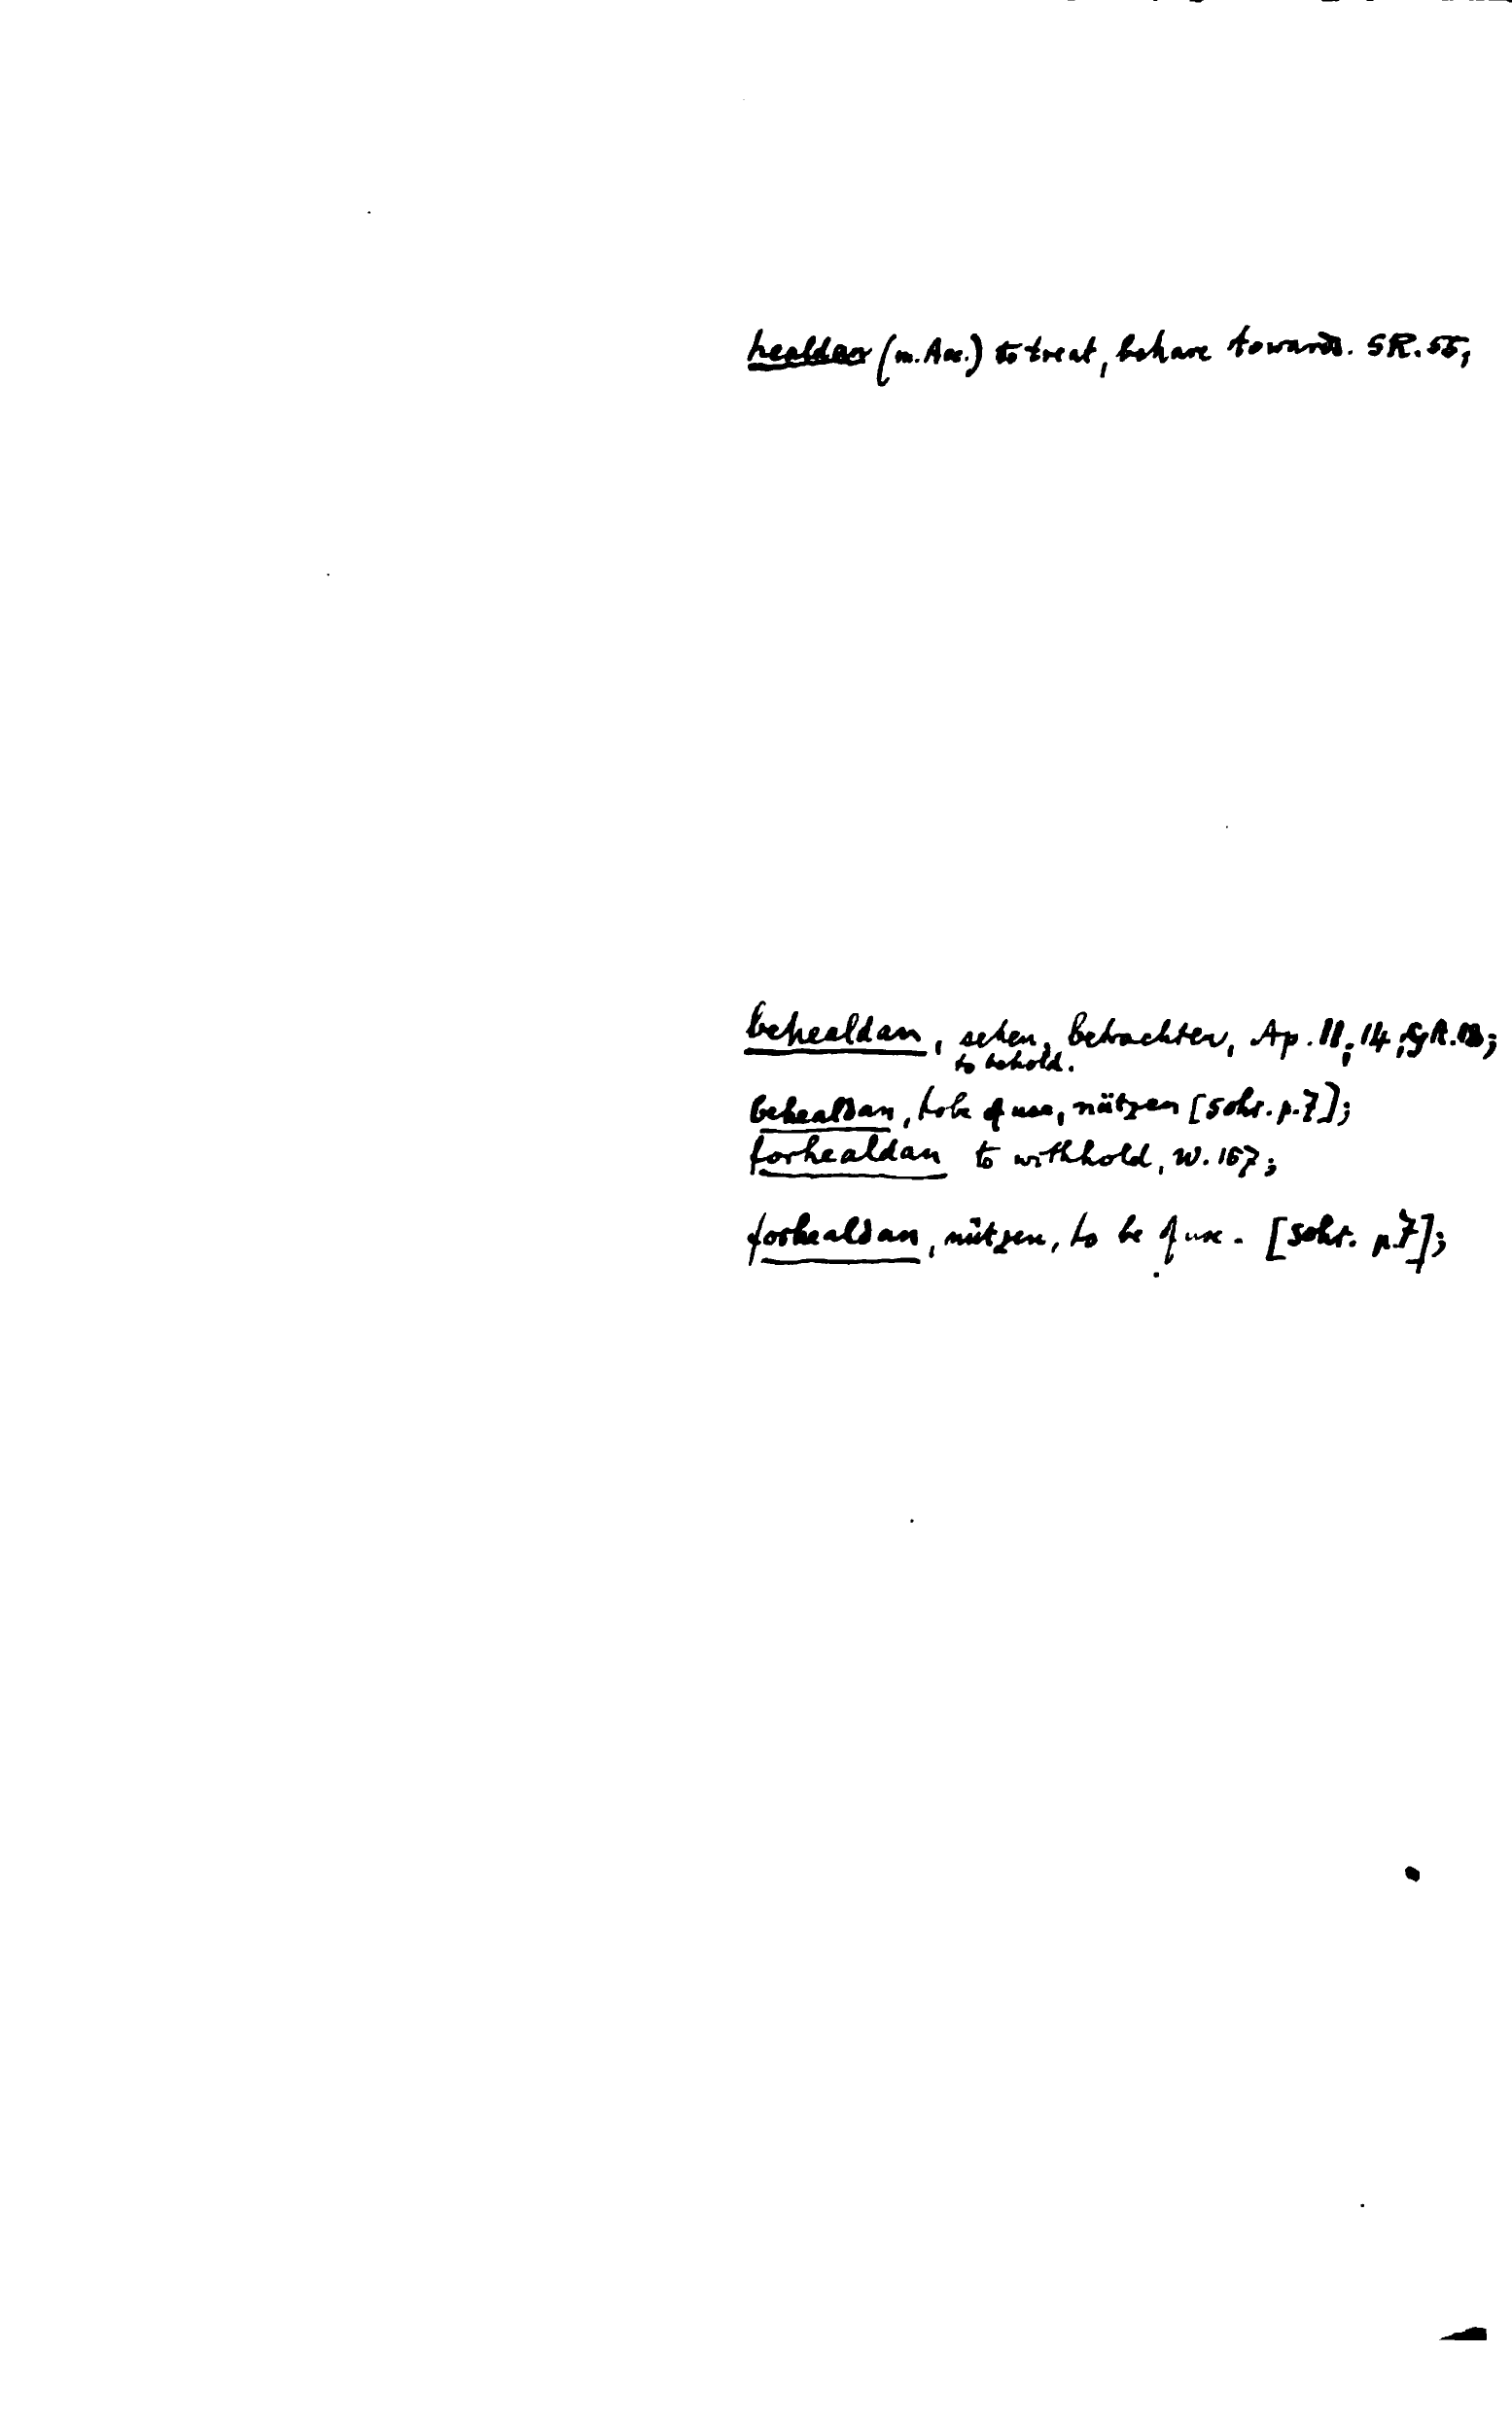 healdan (m. Acc.) to treat, behave towards. SR. 55;
behealdan, sehen, betrachten, Ap. 11; 14;
to behold.
behealdan, to be of use, nützen [Sohr. p. 7];
forhealdan to withhold, W. 167;
forhealdan, nützen, to be of use. [Sohr. p. 7];